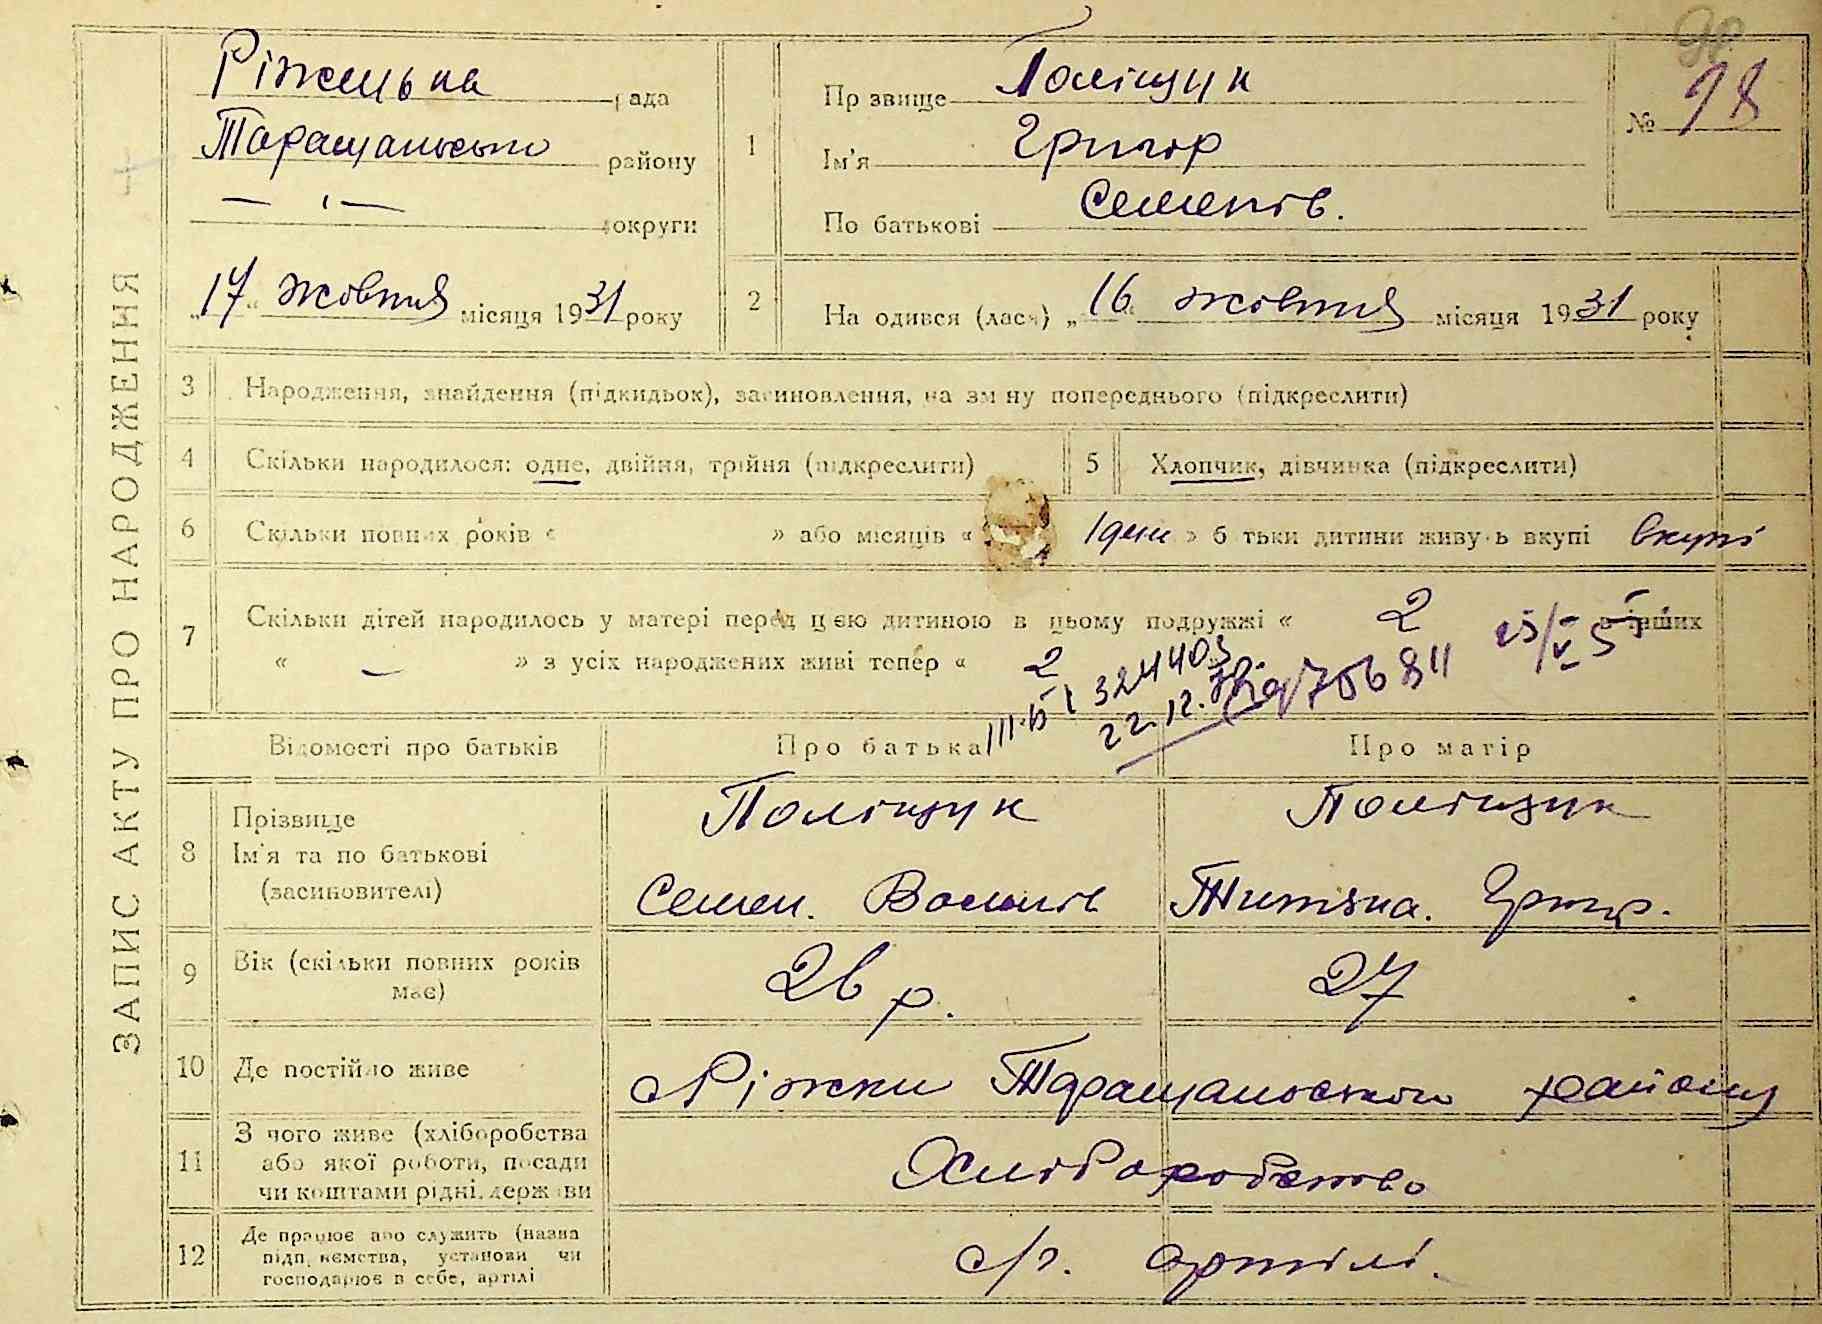 ЗАПИС АКТУ ПРО НАРОДЖЕННЯ
Ріжецька рада
Таращанського району
— „ — округи
„17“ жовтня місяця 1931 року
1
Прізвище Поліщук
Ім'я Григор
По батькові Семенів.
№ 98
98
2
Народився (лася) „16“ жовтня місяця 1931 року
3 Народження, знайдення (підкидьок), засиновлення, на зміну попереднього (підкреслити)
4 Скільки народилося: одне, двійня, трійня (підкреслити)
5 Хлопчик, дівчинка (підкреслити)
6 Скільки повних років « » або місяців « 1 день » батьки дитини живуть вкупі вкупі
7 Скільки дітей народилось у матері перед цією дитиною в цьому подружжі « 2 в інших
« — » з усіх народжених живі тепер « 2
324403
22.12.
Відомості про батьків Про батька Про матір
8 Прізвище
Ім'я та по батькові
(засиновителі)
Поліщук
Семен. Васильів
Поліщук
Титяна. Григор.
9 Вік (скільки повних років має) 26 р. 27
10 Де постійно живе с Ріжки Таращанського району
11 З чого живе (хліборобства
або якої роботи, посади
чи коштами рідні, держави
Хліборобство
12 Де працює або служить (назва
підприємства, установи чи
господарює в себе, артілі
с/г. артілі.